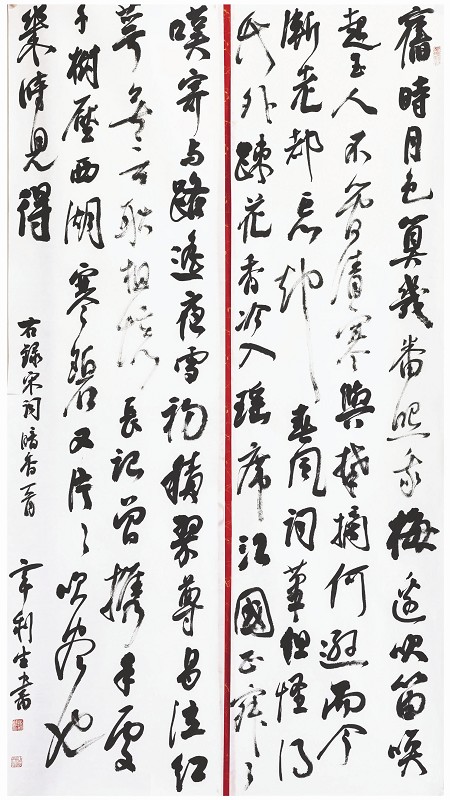 舊時月色算幾番照我梅邊吹笛喚
起玉人不管清寒與攀摘何遜而今
漸老都忘卻春風詞筆但怪得
竹外踈花香冷入瑤席江國正寂〻
嘆寄與路遙夜雪初積翠尊易泣紅
萼無言耿相憶長記曾攜手處
千樹壓西湖寒碧又片〻吹盡也
幾時見得
右錄宋詞暗香一首
辛利生書